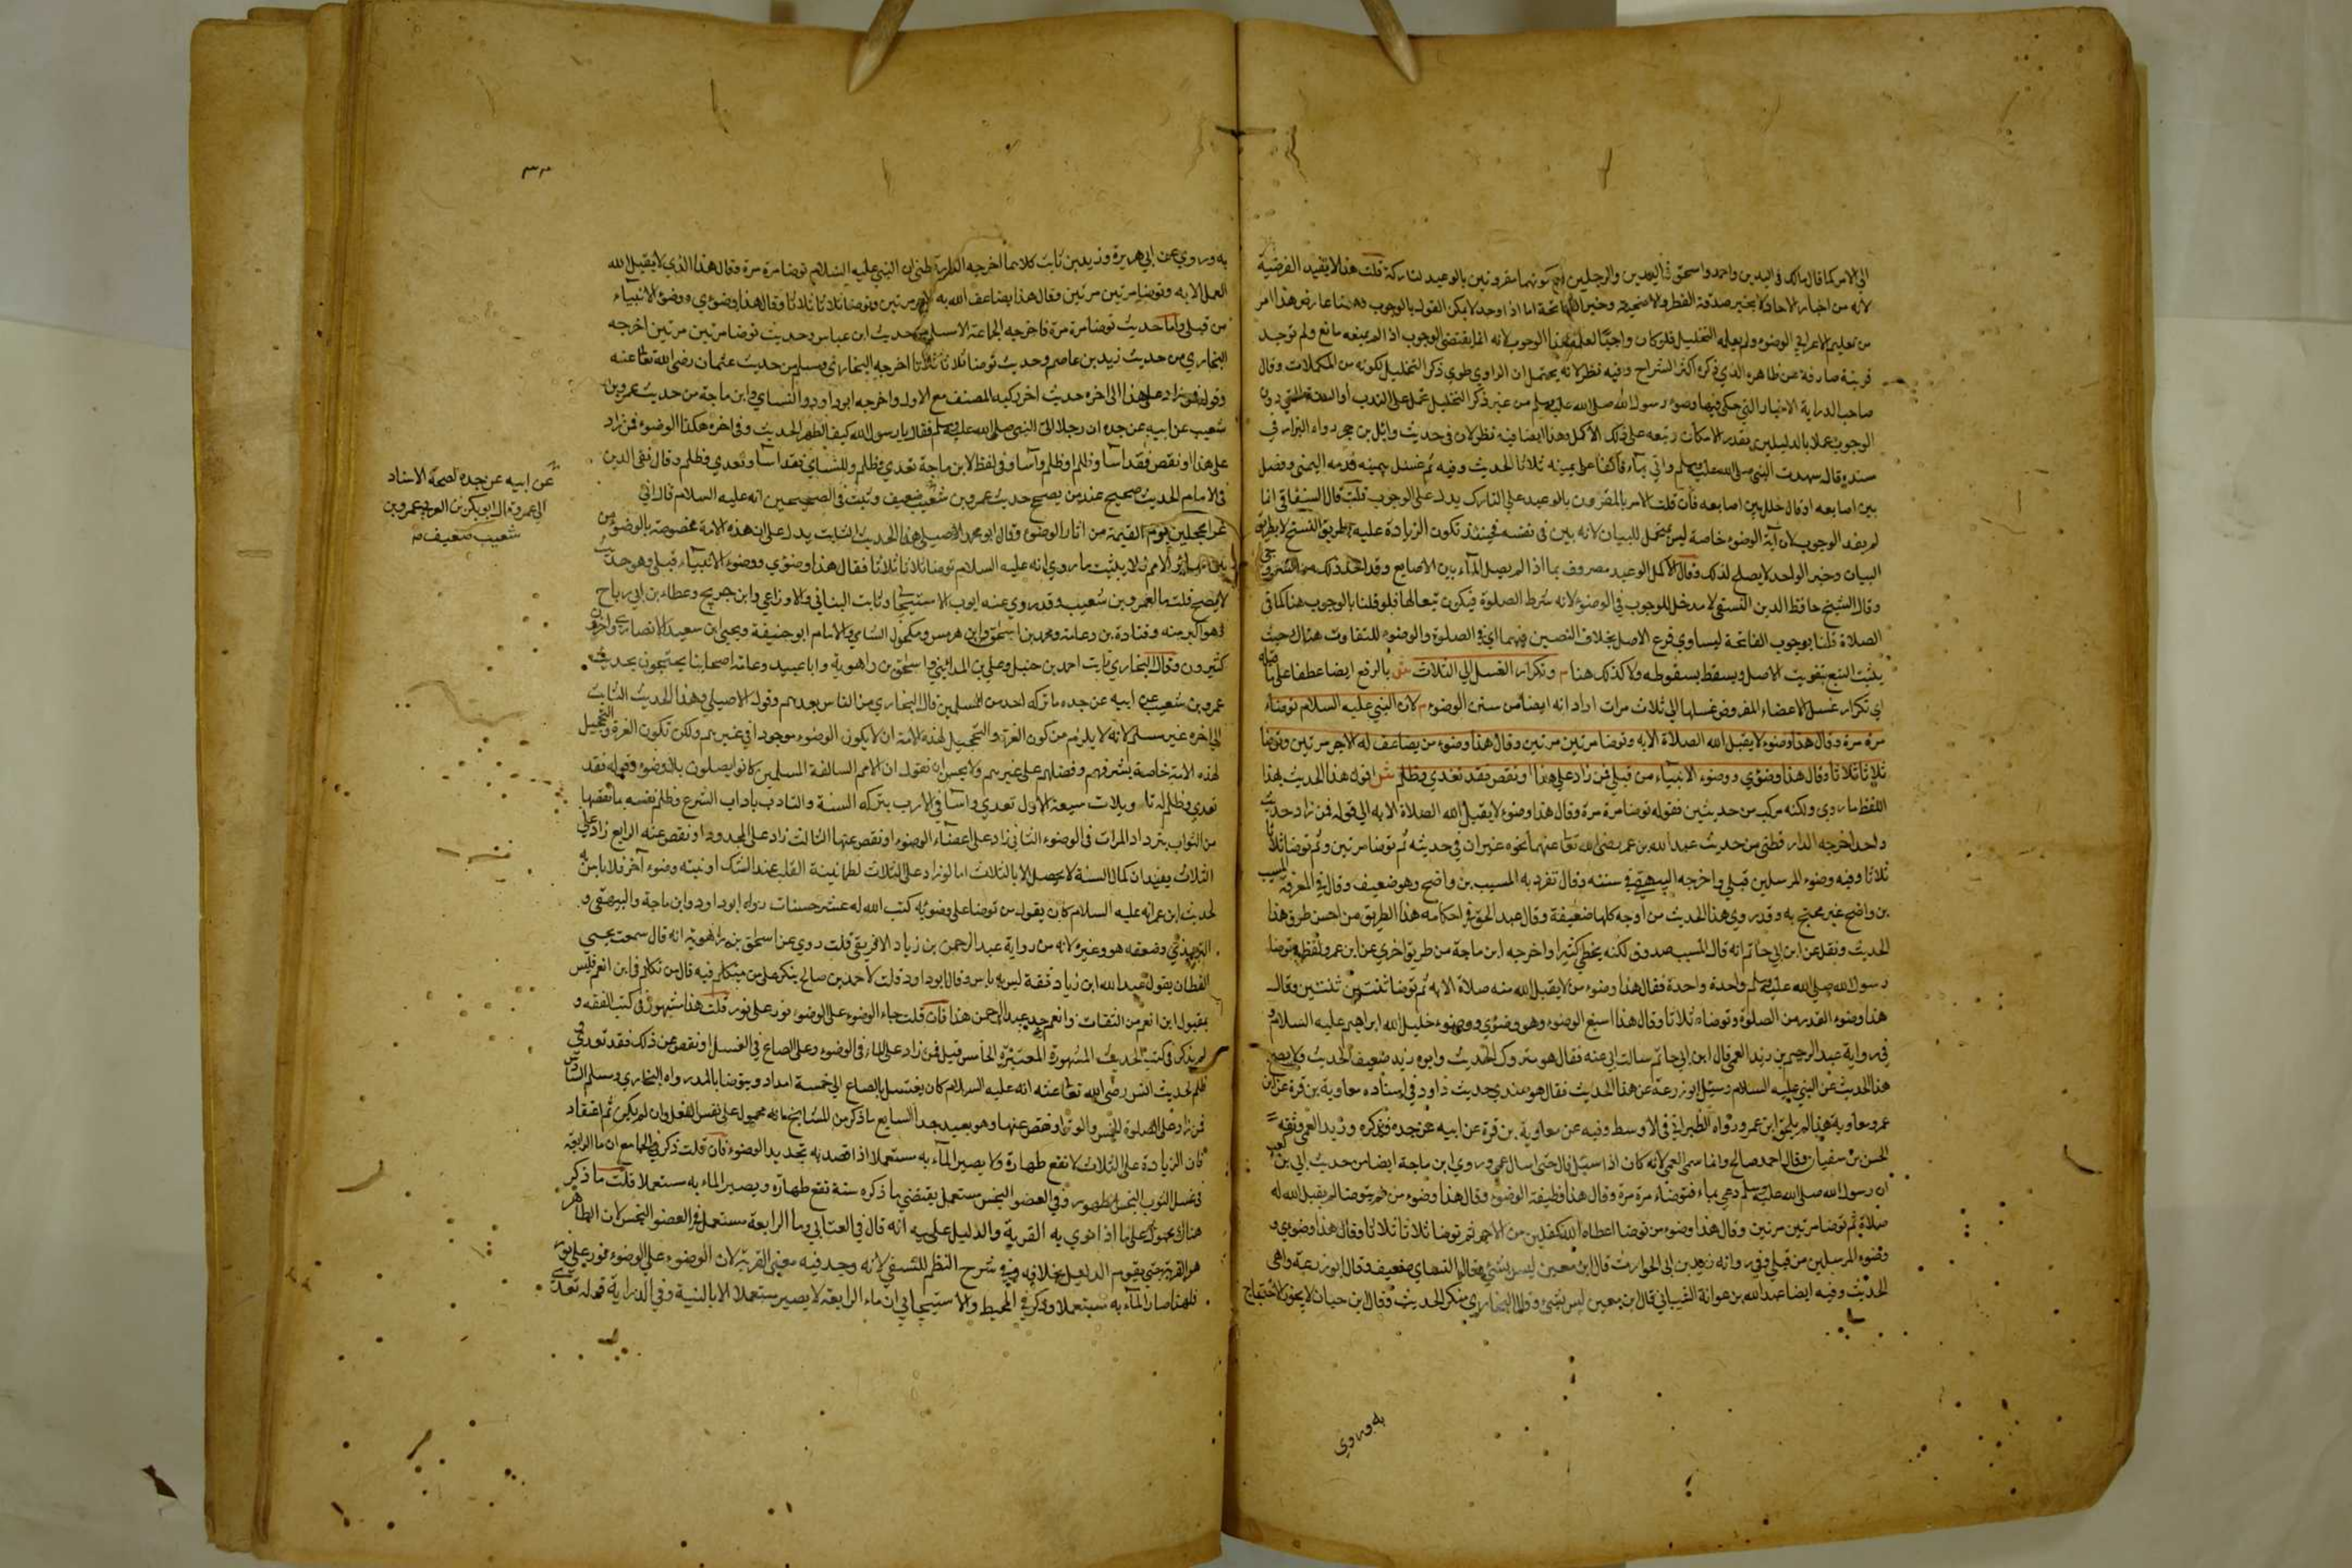 الي الامر كما قال مالك في اليدين واحمد واسحق في اليدين والرجلين مع كونهما مقرونين بالوعيد لتاركه قلت هذا لا يفيد الفرضية
لانه من اخبار الاحاد كخبر صدقة الفطر والاضحية وخبر الفاتحة اما اذا وجد لا يمكن القول بالوجوب وههنا عارض هذا امر
من تعليم الاعرابي الوضوء ولم يعلمه التخليل فلو كان واجبا لعلمه هذا الوجوب لانه انما يقتضي الوجوب اذا لم يمنعه مانع ولم توجد
قرينة صارفة عن ظاهره الذي ذكره اكثر الشراح وفيه نظر لانه يحتمل ان الراوي طوي ذكر التخليل لكونه من المكملات وقال
صاحب الدراية الاخبار التي حكي فيها وضوء رسول الله صلي الله عليه وسلم من غير ذكر التخليل تحمل علي الندب او السنة دون
الوجوب عملا بالدليلين بقدر الامكان وتبعه علي ذلك الاكمل وهذا ايضا فيه نظر لان في حديث وائل بن حجر رواه البزار في
سنده قال شهدت النبي صلي الله عليه وسلم واتي بماء فاكفا علي يمينه ثلاثا الحديث وفيه ثم غسل بيمينه قدمه اليمني وفصل
بين اصابعه او قال خلل بين اصابعه فان قلت الامر بالمقرون بالوعيد علي التارك يدل علي الوجوب قلت قال السغناقي انما
لم يفد الوجوب لان آية الوضوء خاصة ليس بمحتمل للبيان لانه بين في نفسه فحينئذ تكون الزيادة عليه بطريق النسخ لا بطريق
البيان وخبر الواحد لا يصلح لذلك وقال الاكمل الوعيد مصروف بما اذا لم يصل الماء بين الاصابع وقد اخذ ذلك من السروجي
وقال الشيخ حافظ الدين النسفي لا مدخل للوجوب في الوضوء لانه شرط الصلوة فيكون تبعا لها فلو قلنا بالوجوب هنا كما في
الصلاة قلنا بوجوب الفاتحة ليساوي فرع الاصل بخلاف النصين فيهما اي في الصلوة والوضوء للتفاوت هناك حيث
يثبت التبع بتفويت الاصل ويسقط بسقوطه ولا كذلك هنا م وتكرار الغسل الي الثلاث ش بالرفع ايضا عطفا علي ما قبله
اي تكرار غسل الاعضاء المفروض غسلها الي ثلاث مرات اراد انه ايضا من سنن الوضوء م لان النبي عليه السلام توضاء
مرة مرة وقال هذا وضوء لا يقبل الله الصلاة الا به وتوضا مرتين مرتين وقال هذا وضوء من يضاعف له الاجر مرتين وتوضا
ثلاثا ثلاثا وقال هذا وضوئي ووضوء الانبياء من قبلي فمن زاد علي هذا او نقص فقد تعدي وظلم ش اقول هذا الحديث بهذا
اللفظ ما روي ولكنه مركب من حديثين فقوله توضا مرة مرة وقال هذا وضوء لا يقبل الله الصلاة الا به الي قوله فمن زاد حديث
واحد اخرجه الدارقطني من حديث عبد الله بن عمر رضي الله تعا عنهما نحوه غير ان في حديثه ثم توضا مرتين وثم توضا ثلاثا
ثلاثا وفيه وضوء المرسلين قبلي واخرجه البيهقي في سننه وقال تفرد به المسيب بن واضح وهو ضعيف وقال في المعرفة المسيب
بن واضح غير محتج به وقد روي هذا الحديث من اوجه كلها ضعيفة وقال عبد الحق في احكامه هذا الطريق من احسن طرق هذا
الحديث ونقل عن ابن ابي حاتم انه قال المسيب صدوق لكنه يخطي كثيرا واخرجه ابن ماجة من طريق اخري عن ابن عمر ولفظه توضا
رسول الله صلي الله عليه وسلم واحدة واحدة فقال هذا وضوء من لا يقبل الله منه صلاة الا به ثم توضا ثنتين ثنتين وقال
هذا وضوء القدر من الصلوة وتوضاء ثلاثا وقال هذا اسبغ الوضوء وهو وضوئي ووضوء خليل الله ابراهيم عليه السلام و
في رواية عبد الرحيم بن زيد العمي قال ابن ابي حاتم سالت ابي عنه فقال هو متروك الحديث وابوه زيد ضعيف الحديث ولا يصح
هذا الحديث عن النبي عليه السلام وسئل ابو زرعة عن هذا الحديث فقال هو عندي حديث واه وفي اسناده معاوية بن قرة عن ابن
عمر ومعاوية هذا لم يلحق ابن عمر ورواه الطبراني في الاوسط وفيه عن معاوية بن قرة عن ابيه عن جده فذكره وزيد العمي وثقه
الحسن بن سفيان وقال احمد صالح وانما سمي العمي لانه كان اذا سئل قال حتي اسال عمي وروي ابن ماجة ايضا من حديث ابي بن كعب
ان رسول الله صلي الله عليه وسلم دعي بماء فتوضاء مرة مرة وقال هذا وظيفة الوضوء وقال هذا وضوء من لم يتوضا لم يقبل الله له
صلاة ثم توضا مرتين مرتين وقال هذا وضوء من توضا اعطاه الله كفلين من الاجر ثم توضا ثلاثا ثلاثا وقال هذا وضوئي و
وضوء المرسلين من قبلي وفي رواته زيد بن ابي الحواري قال ابن معين ليس بشيء وقال النسائي ضعيف وقال ابو زرعة واهي
الحديث وفيه ايضا عبد الله بن عرانة الشيباني قال ابن معين ليس بشيء وقال البخاري منكر الحديث وقال ابن حبان لا يجوز الاحتجاج
به وروي
به وروي عن ابي هريرة وزيد بن ثابت كلاهما اخرجه الدارقطني ان النبي عليه السلام توضا مرة مرة وقال هذا الذي لا يقبل الله
العمل الا به وتوضا مرتين مرتين وقال هذا يضاعف الله به الاجر مرتين وتوضا ثلاثا ثلاثا وقال هذا وضوئي ووضوء الانبياء
من قبلي واما حديث توضا مرة مرة فاخرجه الجماعة الا مسلم من حديث ابن عباس وحديث توضا مرتين مرتين اخرجه
البخاري من حديث زيد بن عاصم وحديث توضا ثلاثا ثلاثا اخرجه البخاري ومسلم من حديث عثمان رضي الله تعا عنه
وقوله فمن زاد علي هذا الي اخره حديث اخر ركبه المصنف مع الاول واخرجه ابو داود والنساي وابن ماجة من حديث عمرو بن
شعيب عن ابيه عن جده ان رجلا اتي النبي صلي الله عليه وسلم فقال يا رسول الله كيف الطهر الحديث وفي اخره هكذا الوضوء فمن زاد
علي هذا او نقص فقد اسا وظلم او ظلم واسا وفي لفظ لابن ماجة تعدي وظلم وللنساي فقد اسا وتعدي وظلم وقال تقي الدين
في الامام الحديث صحيح عند من يصحح حديث عمرو بن شعيب ضعيف وثبت في الصحيحين انه عليه السلام قال اني
غرا محجلين يوم القيمة من اثار الوضوء وقال ابو محمد الاصيلي هذا الحديث الثابت يدل علي ان هذه الامة مخصوصة بالوضوء من
بين سائر الامم فلا يثبت ما روي انه عليه السلام توضا ثلاثا ثلاثا فقال هذا وضوئي ووضوء الانبياء قبلي وهو حديث
لا يصح قلت ما لعمرو بن شعيب وقد روي عنه ايوب السختياني وثابت البناني والاوزاعي وابن جريج وعطاء بن ابي رباح
وهو اكبر منه وقتادة بن دعامة ومحمد بن اسحق وابن هرمس ومكحول الشامي والامام ابو حنيفة ويحيي ابن سعيد الانصاري واخرون
كثيرون وقال البخاري رايت احمد بن حنبل وعلي بن المدايني واسحق بن راهوية وابا عبيد وعامة اصحابنا يحتجون بحديث
عمرو بن شعيب عن ابيه عن جده ما تركه احد من المسلمين قال البخاري من الناس بعدهم وقول الاصيلي وهذا الحديث الثابت
الي اخره غير مسلم لانه لا يلزم من كون الغرة والتحجيل لهذه الامة ان لا يكون الوضوء موجودا في غيرهم ولكن تكون الغرة والتحجيل
لهذه الامة خاصة لشرفهم وفضلهم علي غيرهم ولا يحسن ان نقول ان الامم السالفة المسلمين كانوا يصلون بلا وضوء وقوله فقد
تعدي وظلم له تاويلات سبعة الاول تعدي واسا في الادب بتركه السنة والتادب باداب الشرع وظلم نفسه ما نقصها
من الثواب بترداد المرات في الوضوء الثاني زاد علي اعضاء الوضوء او نقص عنها الثالث زاد علي المحدود او نقص عنه الرابع زاد علي
الثلاث يعتقد ان كمال السنة لا يحصل الا بالثلاث اما لو زاد علي الثلاث لطمانينة القلب عند الشك او نيته وضوء آخر فلا باس به
لحديث ابن عمر انه عليه السلام كان يقول من توضا علي وضوئه كتب الله له عشر حسنات رواه ابو داود وابن ماجة والبيهقي و
الترمذي وضعفه هو وغيره لانه من رواية عبد الرحمن بن زياد الافريقي قلت روي عن اسحق بن راهوية انه قال سمعت يحيي
القطان يقول عبد الله ابن زياد ثقة ليس به باس وقال ابو داود قلت لاحد بن صالح ينكر علي من يتكلم فيه قال من تكلم في ابن انعم فليس
بمقبول ابن انعم من الثقات وانعم جد عبد الرحمن هذا فان قلت جاء الوضوء علي الوضوء نور علي نور قلت هذا مشهور في كتب الفقه و
لم يذكر في كتب الحديث المشهورة المعتبرة الخامس قيل فمن زاد علي الماء في الوضوء وعلي الصاع في الغسل او نقص من ذلك فقد تعدي
ظلم لحديث انس رضي الله تعا عنه انه عليه السلام كان يغتسل بالصاع الي خمسة امداد ويتوضا بالمد رواه البخاري ومسلم السادس
فمن زاد علي الصلوة الخمس والوتر او نقص عنها وهو بعيد جدا السابع ما ذكر من المشايخ بانه محمول علي نفس الفعل وان لم يكن ثم اعتقاد
فان الزيادة علي الثلاث لا تقع طهارة ولا يصير الماء به مستعملا اذا قصد به تجديد الوضوء فان قلت ذكر في الجامع ان ما الرابعة
في غسل الثوب النجس طهور وفي العضو النجس مستعمل يقتضي ما ذكره سنة تقع طهارة ويصير الماء به مستعملا قلت ما ذكر
هناك محمول علي ما اذا نوي به القربة والدليل علي به انه قال في العتابي وما الرابعة مستعمل في العضو النجس لان الظاهر
هو القربة حتي يقوم الدليل بخلافه وفي شرح النظم للنسفي لانه وجد فيه معني القربة لان الوضوء علي الوضوء نور علي نور
فلهذا صار الماء به مستعملا وذكر في المحيط والاسبيجابي ان ماء الرابعة لا يصير مستعملا الا بالنية وفي الدراية قوله تعدي
عن ابيه عن جده لصحة الاسناد
الي عمرو قال ابو بكر بن العربي عمرو بن
شعيب ضعيف